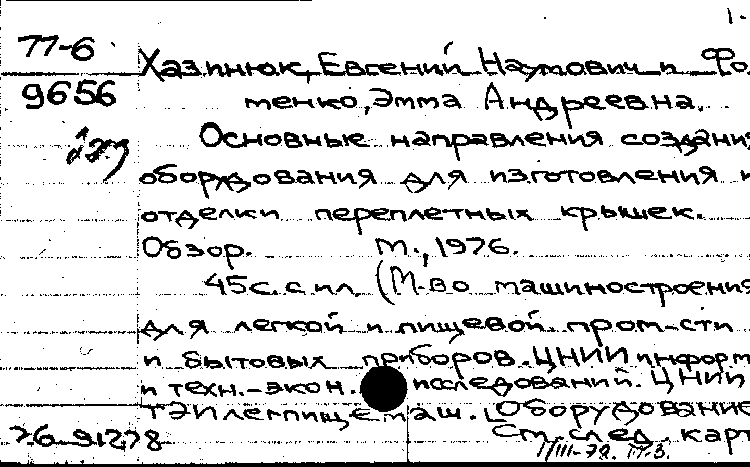 1-
77-6
Хазинюк, Евгений Наумович и Фо
9656
менко, Эмма Андреевна.
Основные направления создани
оборудования для изготовления и
отделки переплетных крышек.
Обзор. М., 1976.
45 с. с ил. (М-во машиностроения
для легкой и пищевой пром-сти
и бытовых приборов. ЦНИИ информ
и техн.-экон. исследований. ЦНИИ
ТЭИлегпищемаш. Оборудование
76-91278
См. след. карт